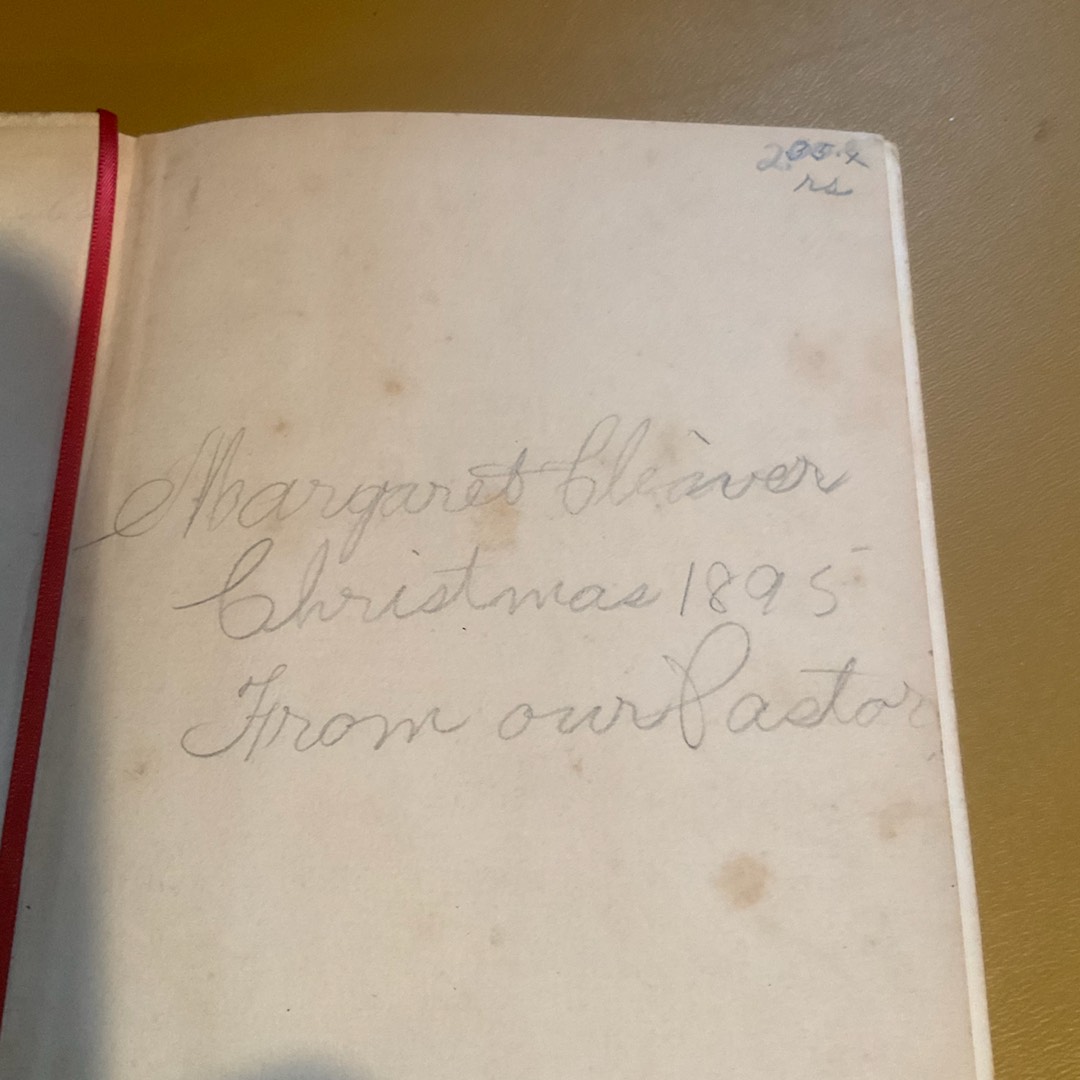 rs
Margaret Cleaver
Christmas 1895
From our Pastor